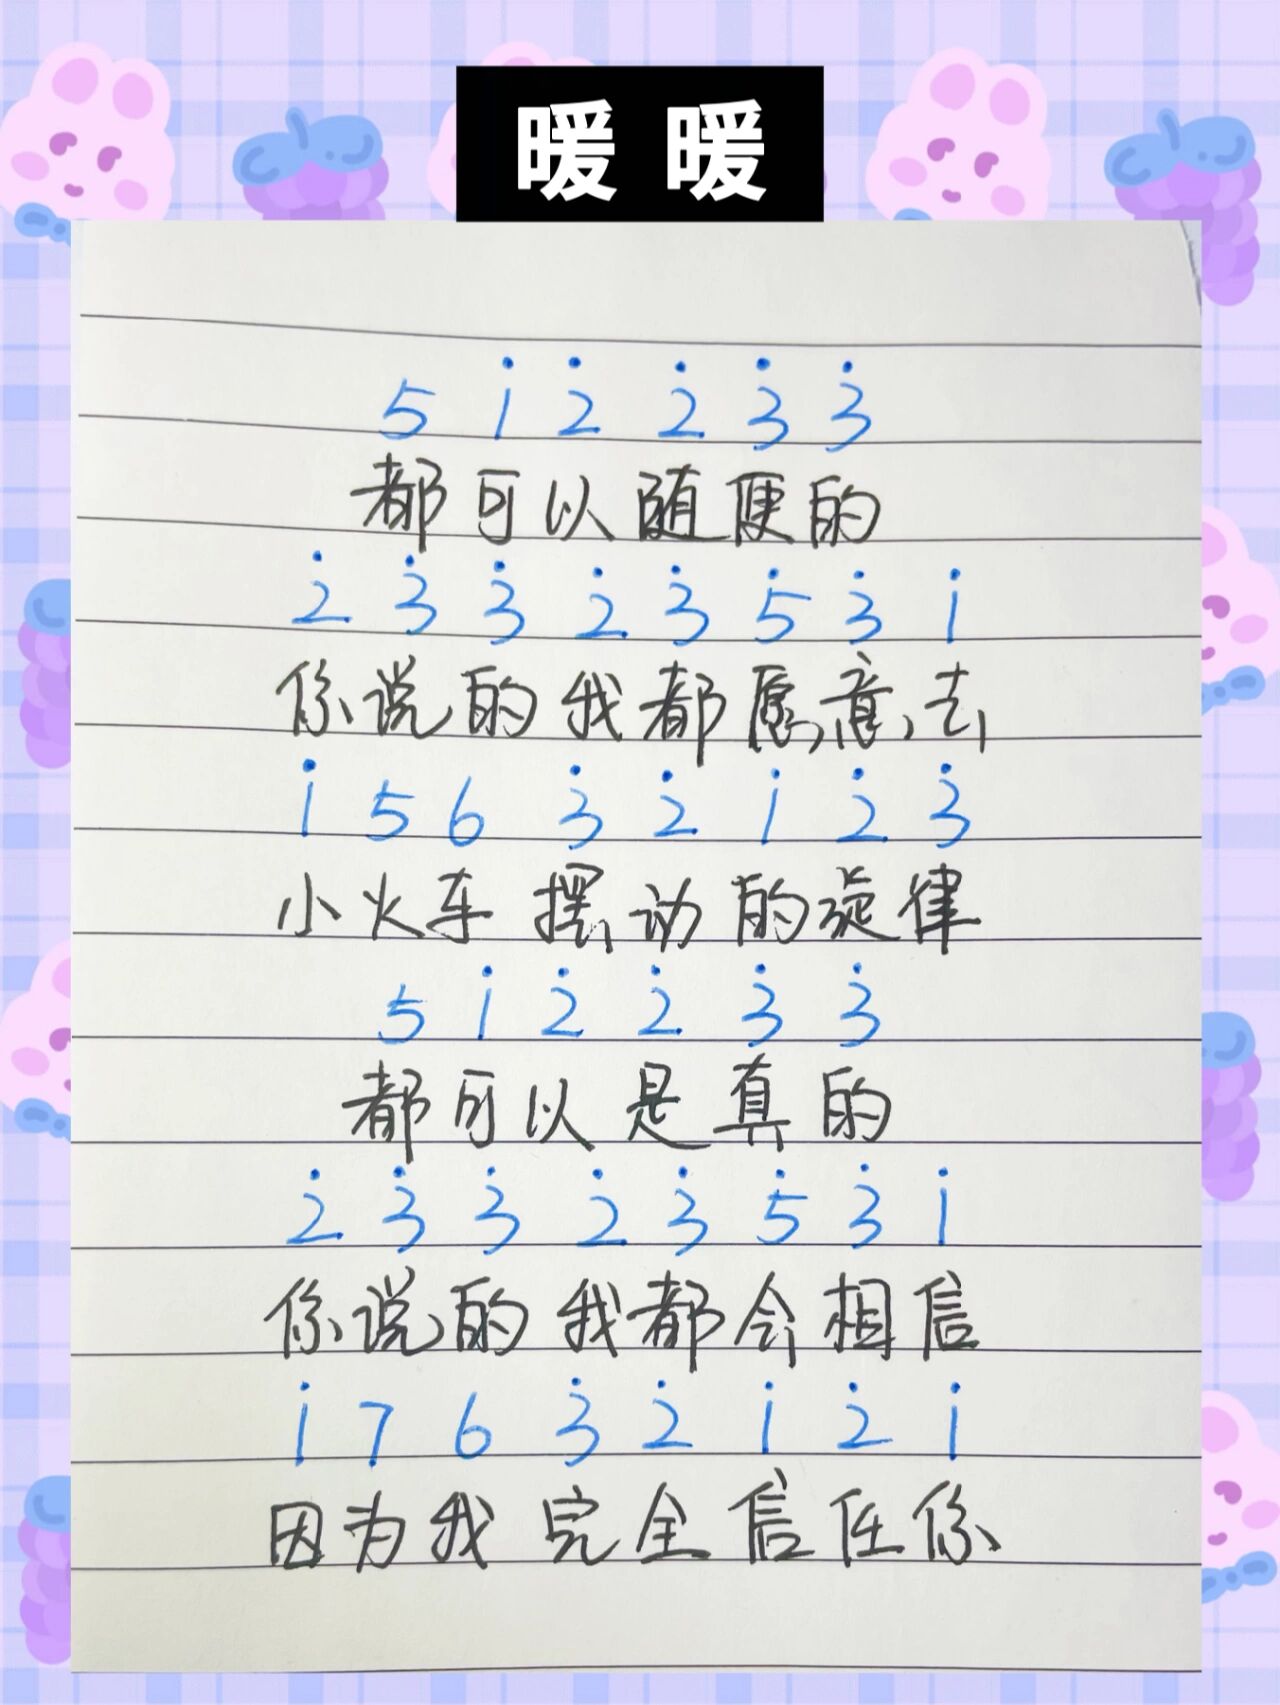 暖 暖
5 1̇ 2̇ 2̇ 3̇ 3̇
都可以随便的
2̇ 3̇ 3̇ 2̇ 3̇ 5̇ 3̇ 1̇
你说的我都愿意去
1̇ 5 6 3̇ 2̇ 1̇ 2̇ 3̇
小火车 摆动的旋律
5 1̇ 2̇ 2̇ 3̇ 3̇
都可以是真的
2̇ 3̇ 3̇ 2̇ 3̇ 5̇ 3̇ 1̇
你说的 我都会相信
1̇ 7 6 3̇ 2̇ 1̇ 2̇ 1̇
因为我 完全信任你